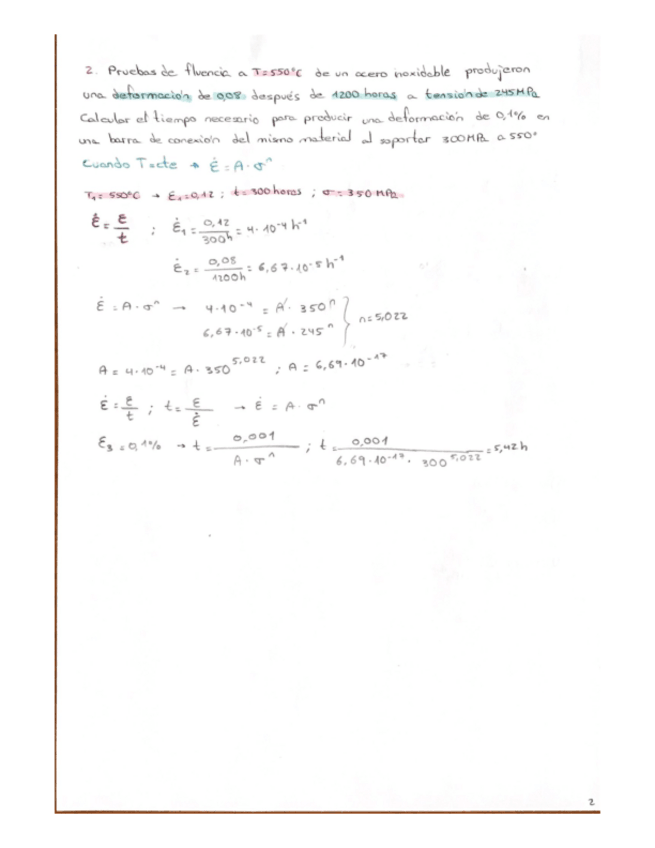 2. Pruebas de fluencia a T=550ºC de un acero inoxidable produjeron
una deformación de 0,08 después de 1200 horas a tensión de 245 MPa
Calcular el tiempo necesario para producir una deformación de 0,1% en
una barra de conexión del mismo material al soportar 300 MPa a 550º
Cuando T=cte → ε̇ = A · σⁿ
T₁ = 550ºC → ε₁ = 0,12 ; t = 300 horas ; σ = 350 MPa
ε̇ = ε/t ; ε̇₁ = 0,12/300h = 4 · 10⁻⁴ h⁻¹
ε̇₂ = 0,08/1200h = 6,67 · 10⁻⁵ h⁻¹
ε̇ = A · σⁿ → 4 · 10⁻⁴ = A · 350ⁿ
6,67 · 10⁻⁵ = A · 245ⁿ } n = 5,022
A = 4 · 10⁻⁴ = A · 350^5,022 ; A = 6,69 · 10⁻¹⁷
ε̇ = ε/t ; t = ε/ε̇ → ε̇ = A · σⁿ
ε₃ = 0,1% → t = 0,001/A · σⁿ ; t = 0,001/6,69 · 10⁻¹⁷ · 300^5,022 = 5,42 h
2